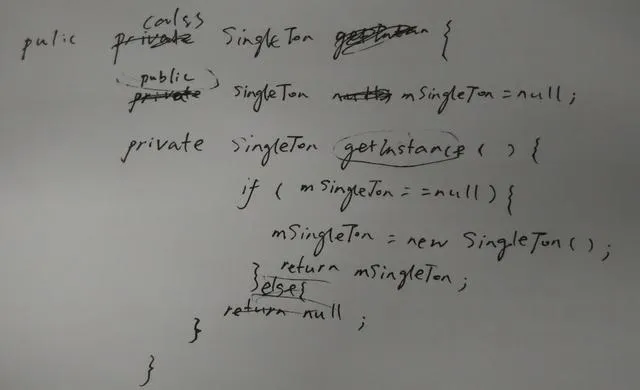 pulic coalss SingleTon {
public SingleTon mSingleTon = null ;
private SingleTon getInstance ( ) {
if ( mSingleTon = = null ) {
mSingleTon = new SingleTon ( ) ;
return mSingleTon ;
} else {
return null ;
}
}